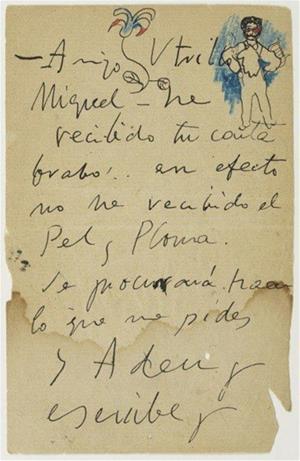 — Amigo Utrillo
Miguel — he
recibido tu carta
brabo!.. en efecto
no he recibido el
Pel y Ploma.
Se procurará hacer
lo que me pides
y Adeu y
escribe y